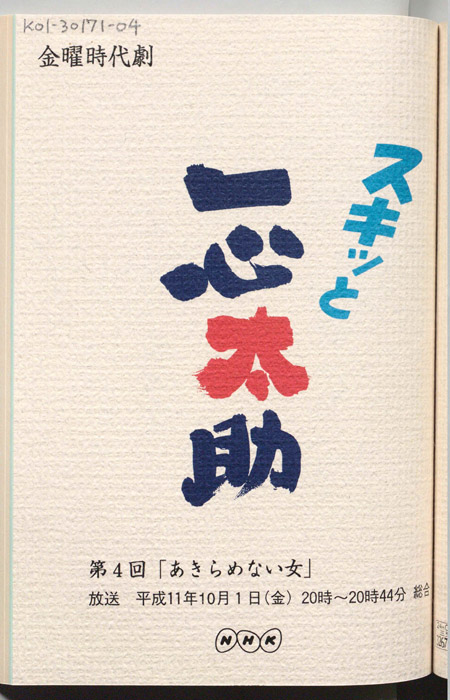 K01-30171-04
金曜時代劇
スキッと
一心太助
第4回「あきらめない女」
放送 平成11年10月1日(金) 20時〜20時44分 総合
NHK